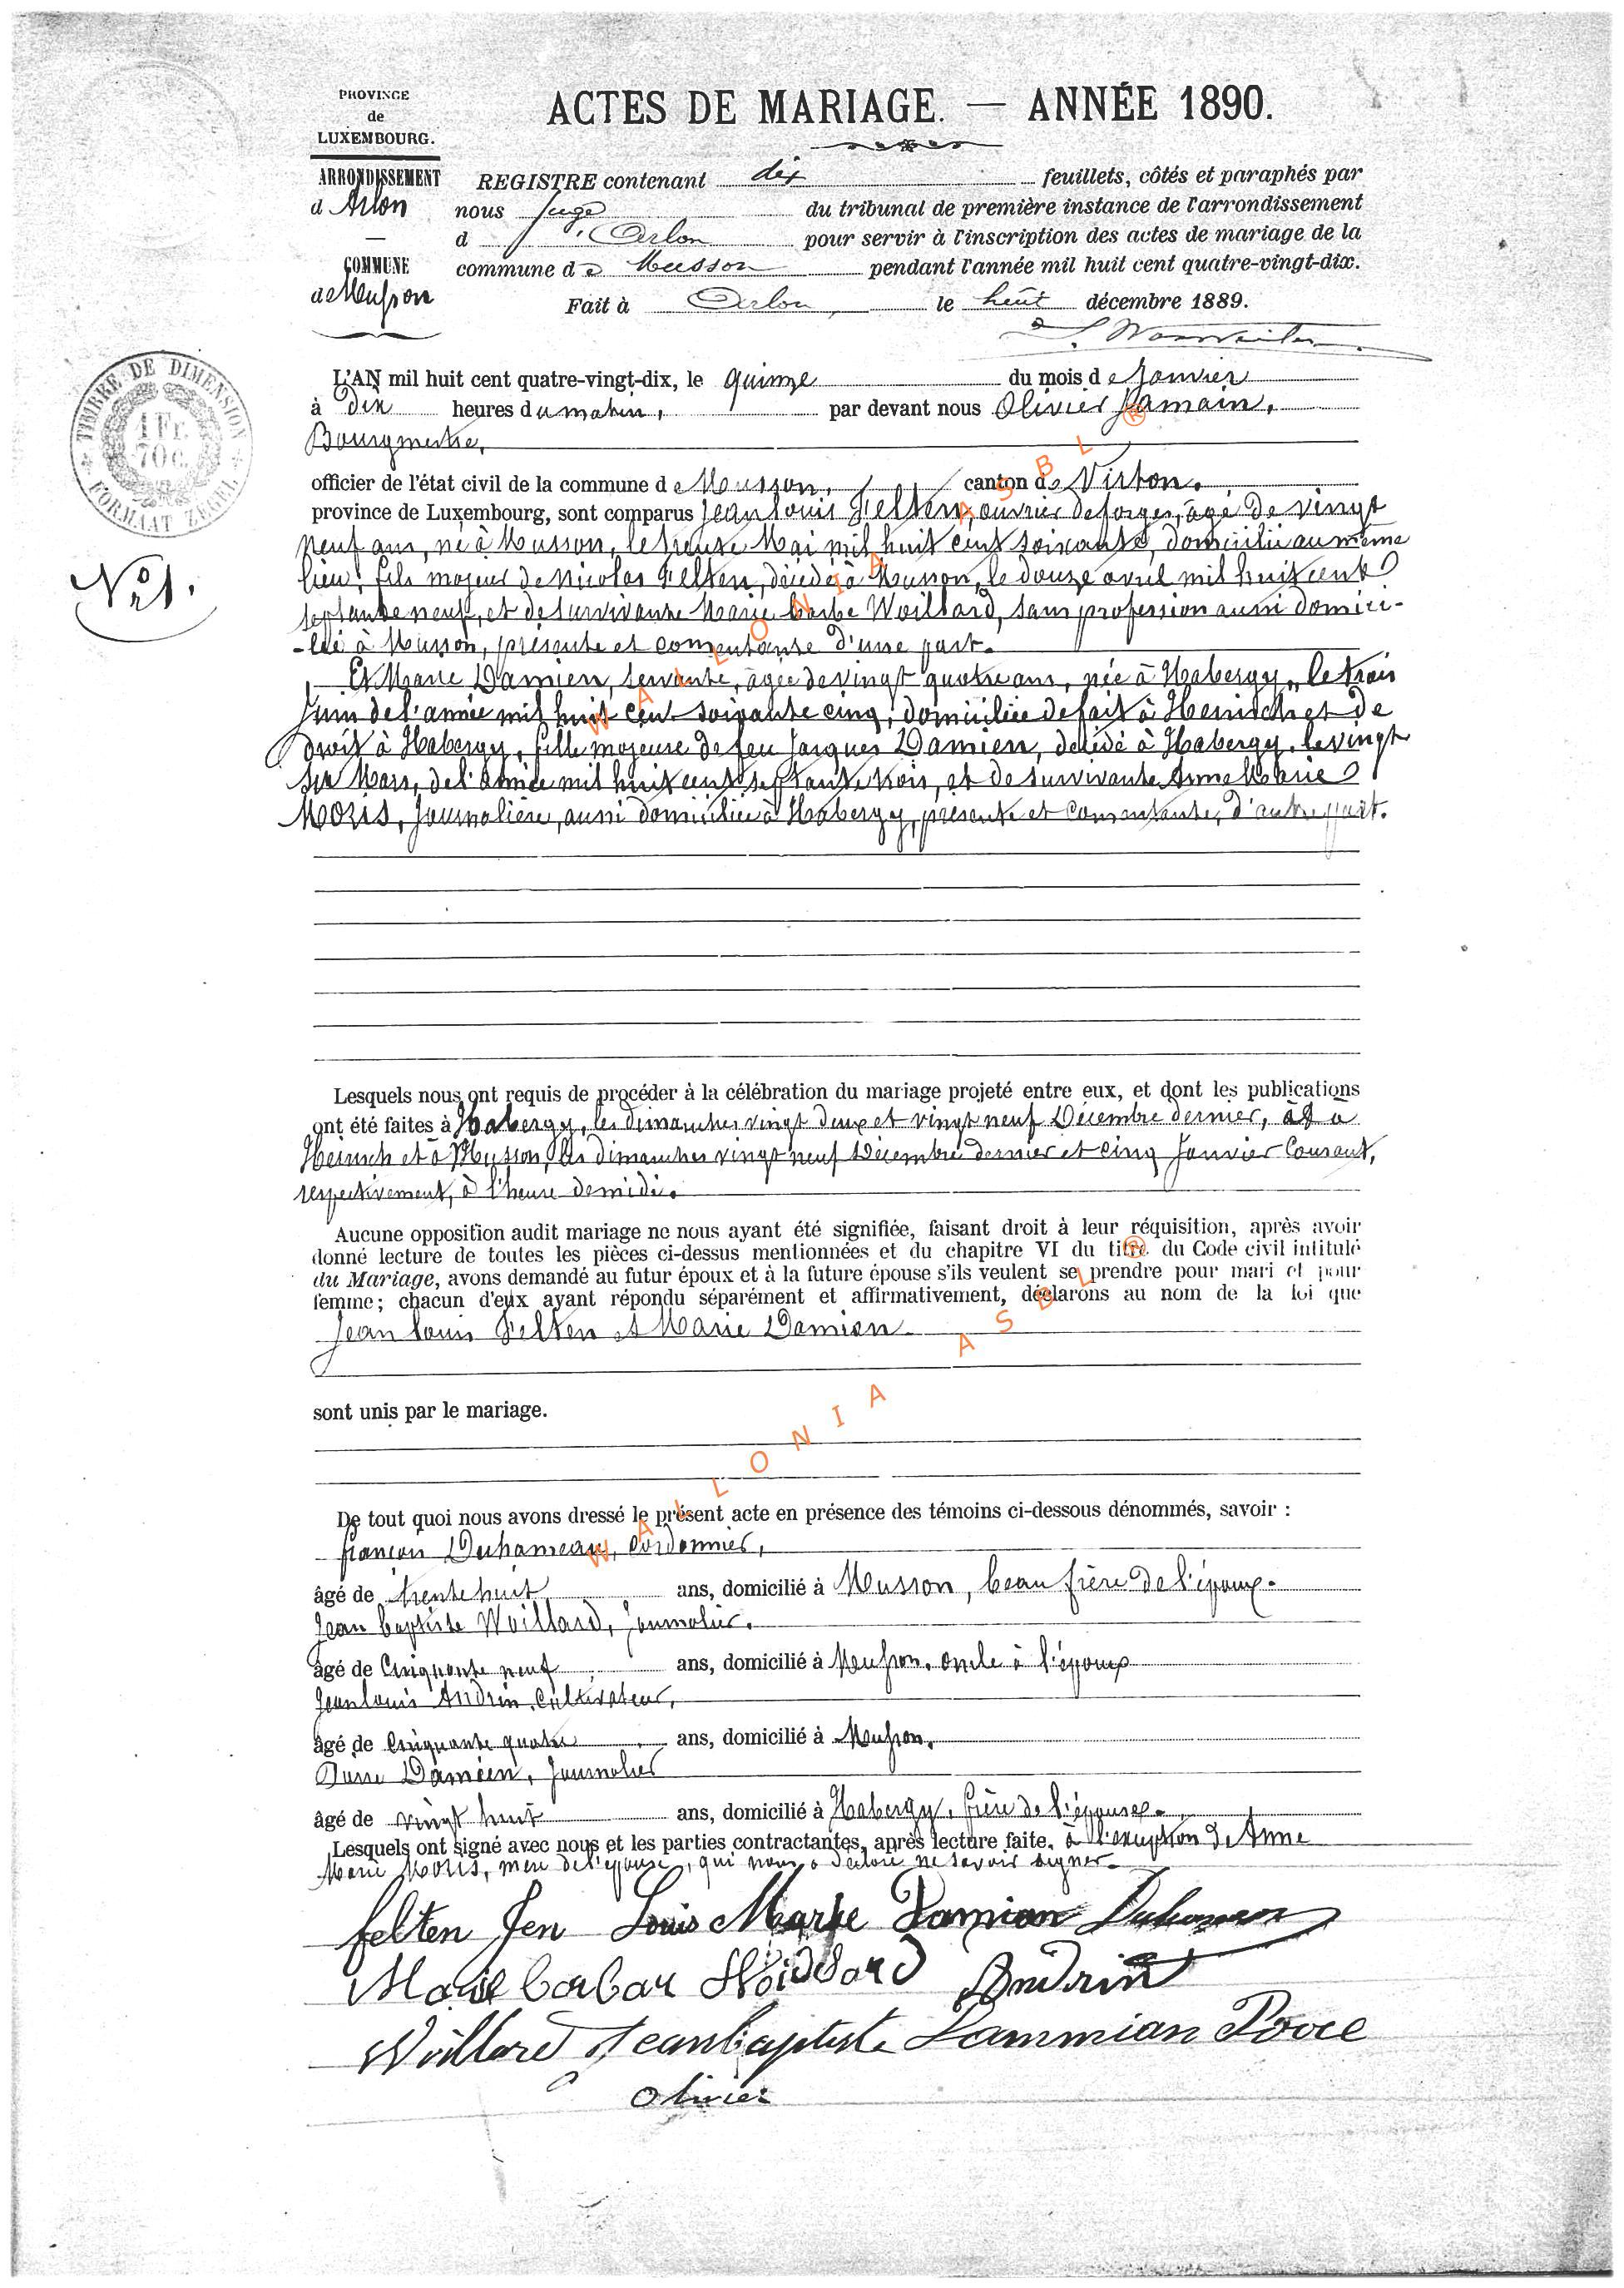 PROVINCE
de
LUXEMBOURG.
ACTES DE MARIAGE. — ANNÉE 1890.
ARRONDISSEMENT
d'Arlon
COMMUNE
de Musson
REGISTRE contenant dix feuillets, côtés et paraphés par
nous Juge du tribunal de première instance de l'arrondissement
d'Arlon pour servir à l'inscription des actes de mariage de la
commune de Musson pendant l'année mil huit cent quatre-vingt-dix.
Fait à Arlon, le huit décembre 1889.
TIMBRE DE DIMENSION
1 Fr.
70 c.
FORMAAT ZEGEL
N° 1.
L'AN mil huit cent quatre-vingt-dix, le quinze du mois de Janvier
à dix heures du matin, par devant nous Olivier Jamain,
Bourgmestre,
officier de l'état civil de la commune de Musson, canton de Virton,
province de Luxembourg, sont comparus Jean Louis Felten, ouvrier de forges, âgé de vingt
neuf ans, né à Musson, le trente Mai mil huit cent soixante, domicilié au même
lieu, fils majeur de Nicolas Felten, décédé à Musson, le douze avril mil huit cent
septante neuf, et de survivante Marie Barbe Woillard, sans profession aussi domici-
-liée à Musson, présente et consentante d'une part.
Et Marie Damien, servante, âgée de vingt quatre ans, née à Habergy, le trois
Juin de l'année mil huit cent soixante cinq, domiciliée de fait à Heinsch et de
droit à Habergy, fille majeure de feu Jacques Damien, décédé à Habergy, le vingt
six Mars, de l'année mil huit cent septante trois, et de survivante Anne Marie
Moris, Journalière, aussi domiciliée à Habergy, présente et consentante, d'autre part.
Lesquels nous ont requis de procéder à la célébration du mariage projeté entre eux, et dont les publications
ont été faites à Habergy, les dimanches vingt deux et vingt neuf Décembre dernier, et à
Heinsch et à Musson, les dimanches vingt neuf Décembre dernier et cinq Janvier Courant,
respectivement, à l'heure de midi.
Aucune opposition audit mariage ne nous ayant été signifiée, faisant droit à leur réquisition, après avoir
donné lecture de toutes les pièces ci-dessus mentionnées et du chapitre VI du titre du Code civil intitulé
du Mariage, avons demandé au futur époux et à la future épouse s'ils veulent se prendre pour mari et pour
femme; chacun d'eux ayant répondu séparément et affirmativement, déclarons au nom de la loi que
Jean Louis Felten et Marie Damien
sont unis par le mariage.
De tout quoi nous avons dressé le présent acte en présence des témoins ci-dessous dénommés, savoir :
françois Duhameau, Cordonnier,
âgé de trente huit ans, domicilié à Musson, beau frère de l'époux.
Jean baptiste Woillard, Journalier.
âgé de Cinquante neuf ans, domicilié à Musson, oncle à l'époux
Jean Louis Andrin, Cultivateur,
âgé de Cinquante quatre ans, domicilié à Musson,
Pierre Damien, Journalier
âgé de vingt huit ans, domicilié à Habergy, frère de l'épouse.
Lesquels ont signé avec nous et les parties contractantes, après lecture faite, à l'exception de Anne
Marie Moris, mère de l'épouse, qui nous a déclaré ne savoir signer.
felten Jen Louis Marie Damian Duhameau
Marie barbar Woillard Andrin
Woillard Jean baptiste Dammian
Olivier
WALLONIA ASBL ®
WALLONIA ASBL ®